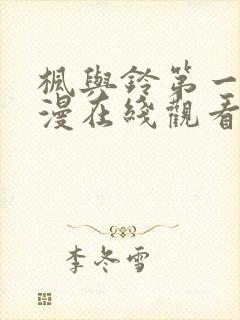 楓與鈴第一
漫在綫觀看
李冬雪